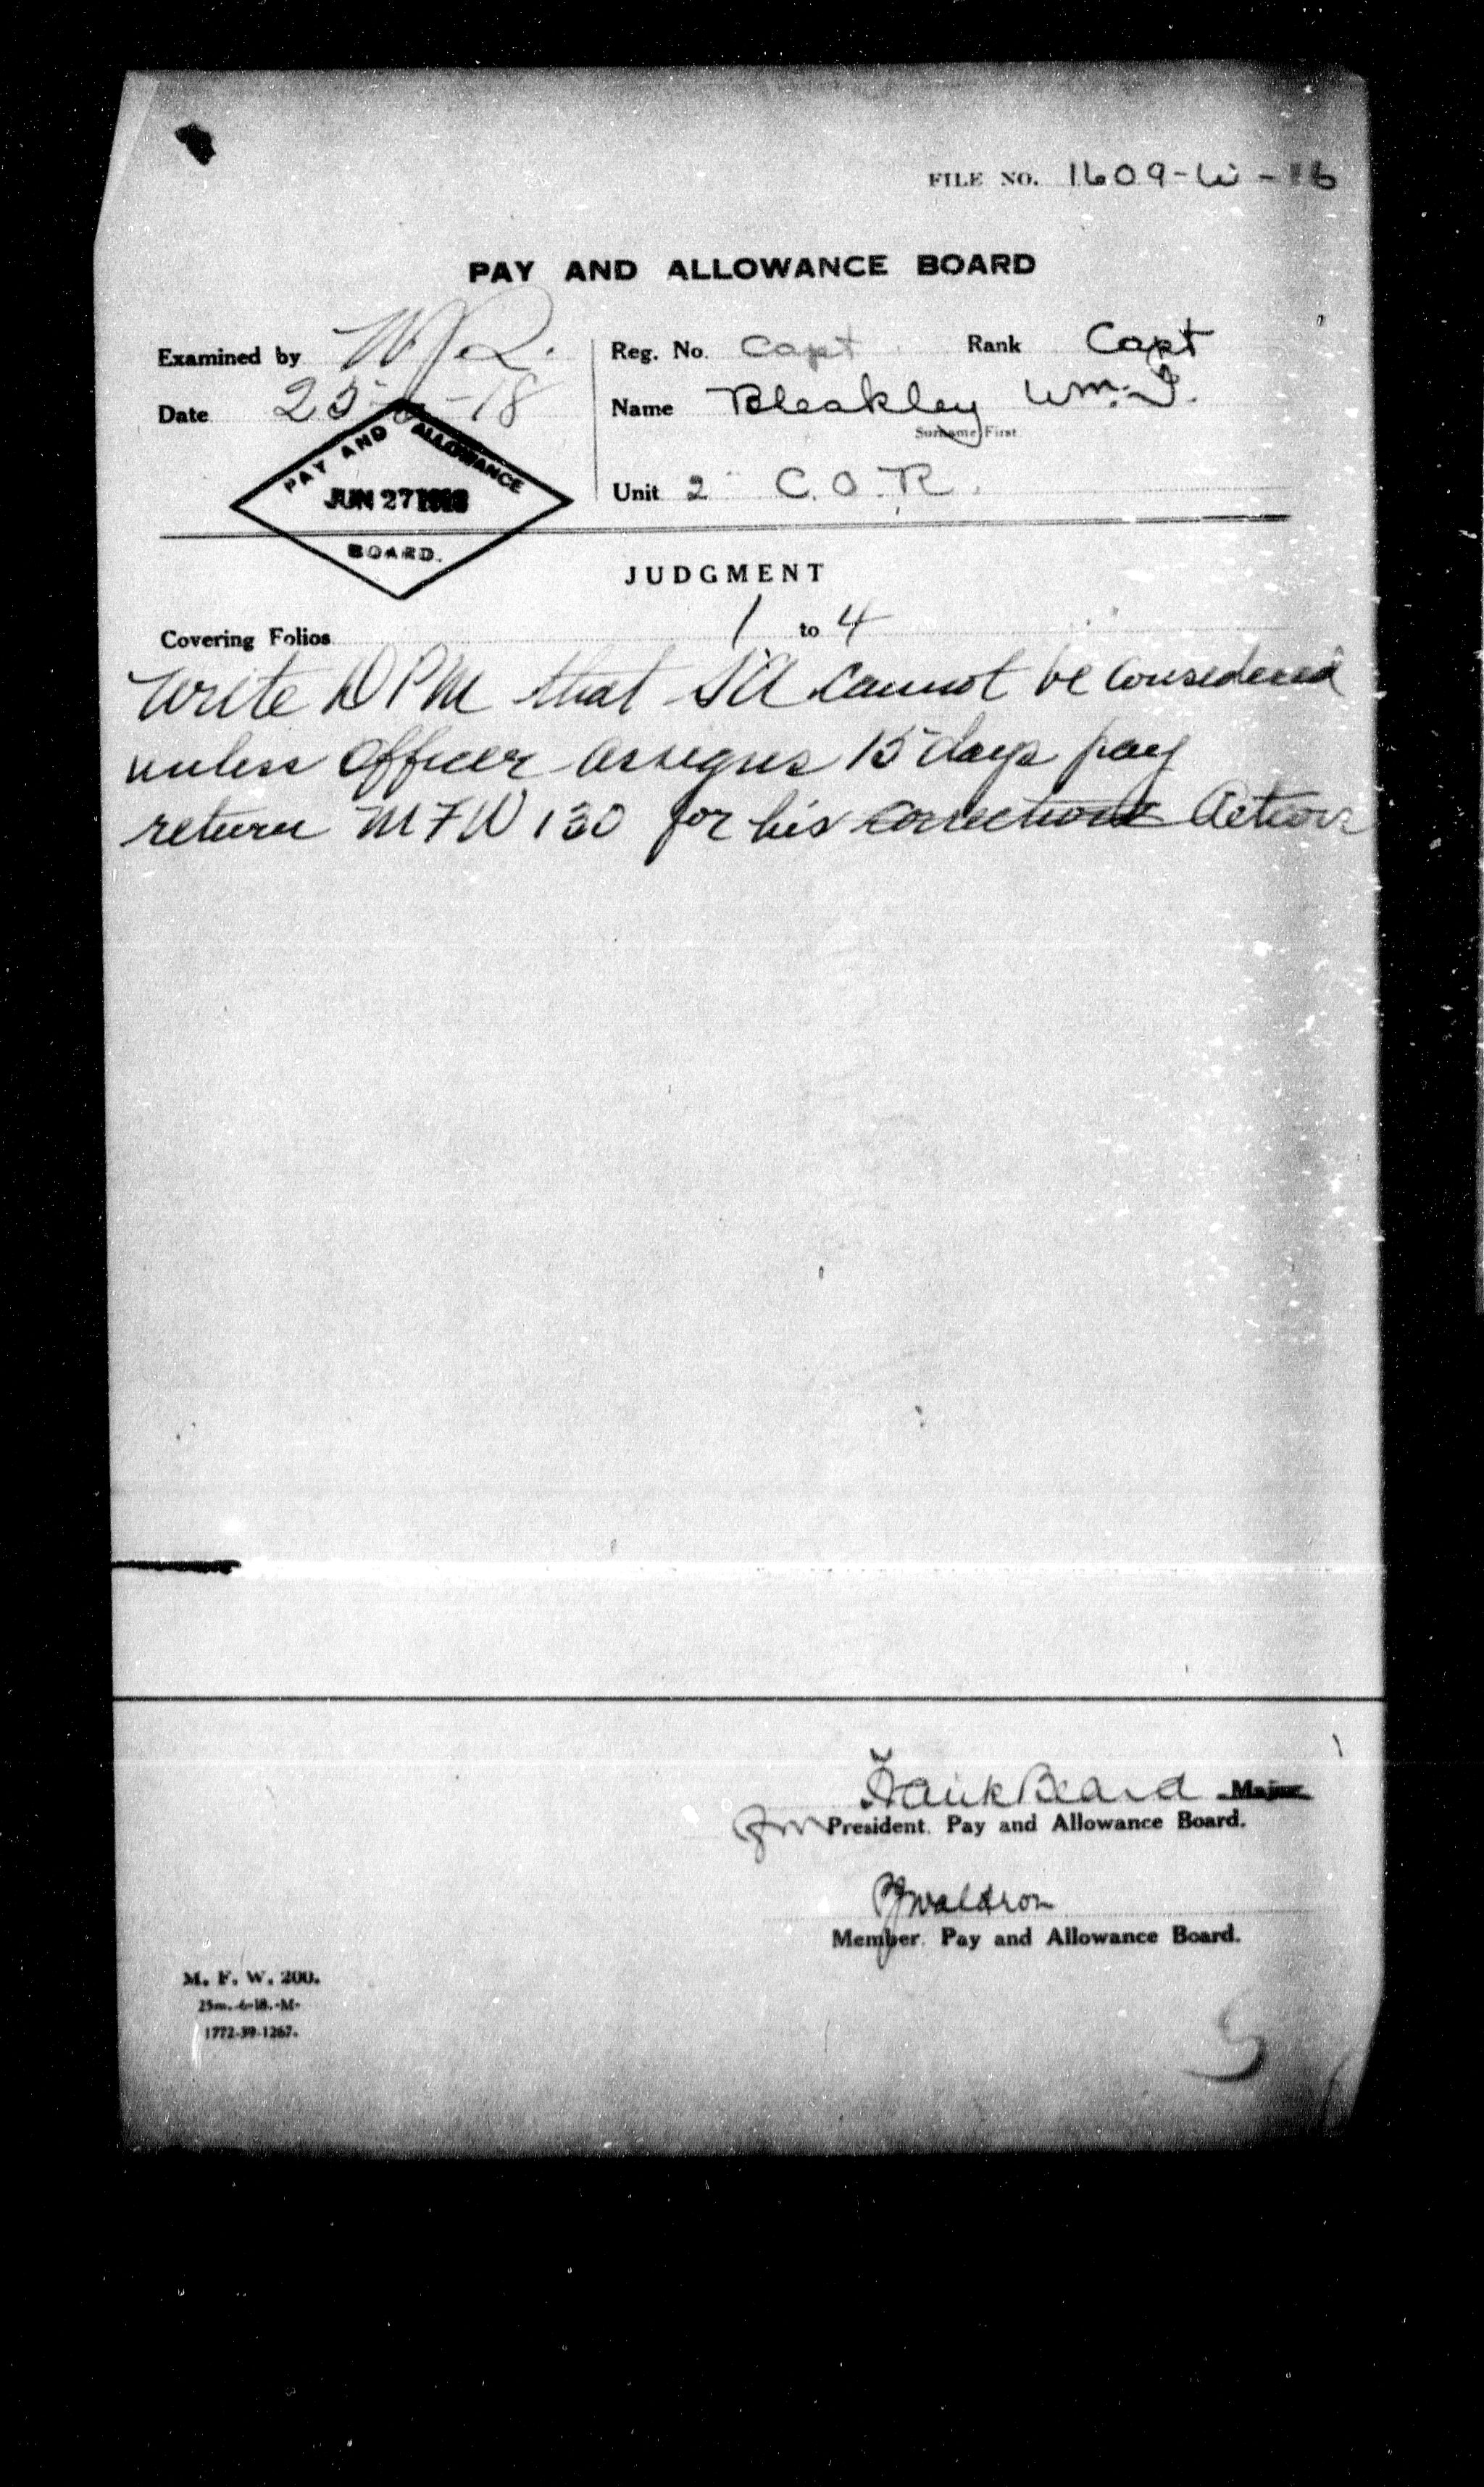 FILE NO. 1609-W-16
PAY AND ALLOWANCE BOARD
Examined by
Date 25-6-18
Reg. No. Capt Rank Capt
Name Bleakley Wm.
Surname First
Unit 2 C.O.R.
PAY AND ALLOWANCE
JUN 27 1918
BOARD.
JUDGMENT
Covering Folios 1 to 4
Write DPM that SA cannot be considered
unless Officer assigns 15 days pay
return MFW 130 for his corrections Action
Frank Beard Major
for President. Pay and Allowance Board.
Waldron
Member. Pay and Allowance Board.
M. F. W. 200.
25m.-6-18.-M-
1772-39-1267.
5